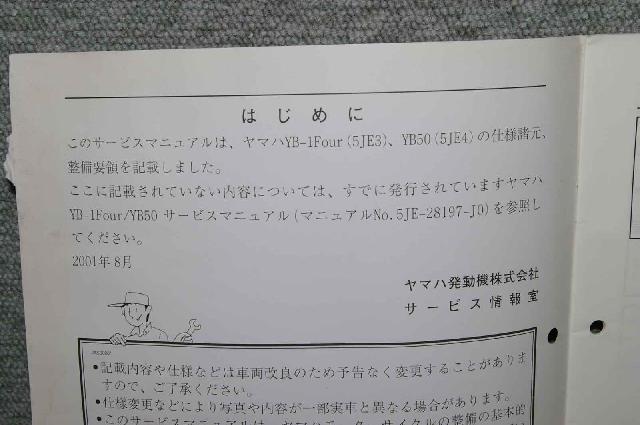 はじめに
このサービスマニュアルは、ヤマハYB-1Four(5JE3)、YB50(5JE4)の仕様諸元、
整備要領を記載しました。
ここに記載されていない内容については、すでに発行されていますヤマハ
YB-1Four/YB50 サービスマニュアル(マニュアルNo.5JE-28197-J0)を参照し
てください。
2001年8月
ヤマハ発動機株式会社
サービス情報室
•記載内容や仕様などは車両改良のため予告なく変更することがありま
すので、ご了承ください。
•仕様変更などにより写真や内容が一部実車と異なる場合があります。
•このサービスマニュアルは、ヤマハモーターサイクルの整備の基本的